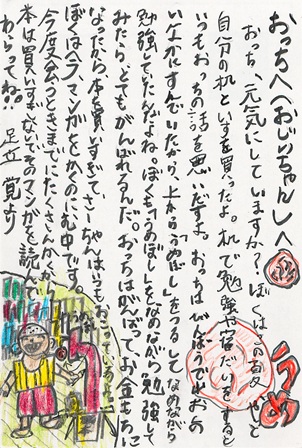 おっちへ(おじいちゃん)へ
おっち、元気にしていますか？ぼくはこの春、やっと
自分の机といすを買ったよ。机で勉強や宿だいをすると
いつもおっちの話を思いだすよ。おっちはびんぼうで
いなかにすんでいたから、上から「うめぼし」をつるしてなめながら
勉強してたんだよね。ぼくも「うめぼし」をなめながら勉強して
みたら、とてもがんばれるんだ。おっちはがんばって、お金もちに
なったら、本を買いすぎて、さーちゃんはいつもおこっているよ。
ぼくは今、マンガをかくのにむ中です。
今度会うときまでにたくさんかくから
本は買いすぎないで、そのマンガを読んで
わらってね!! 足立 覚より
うめ